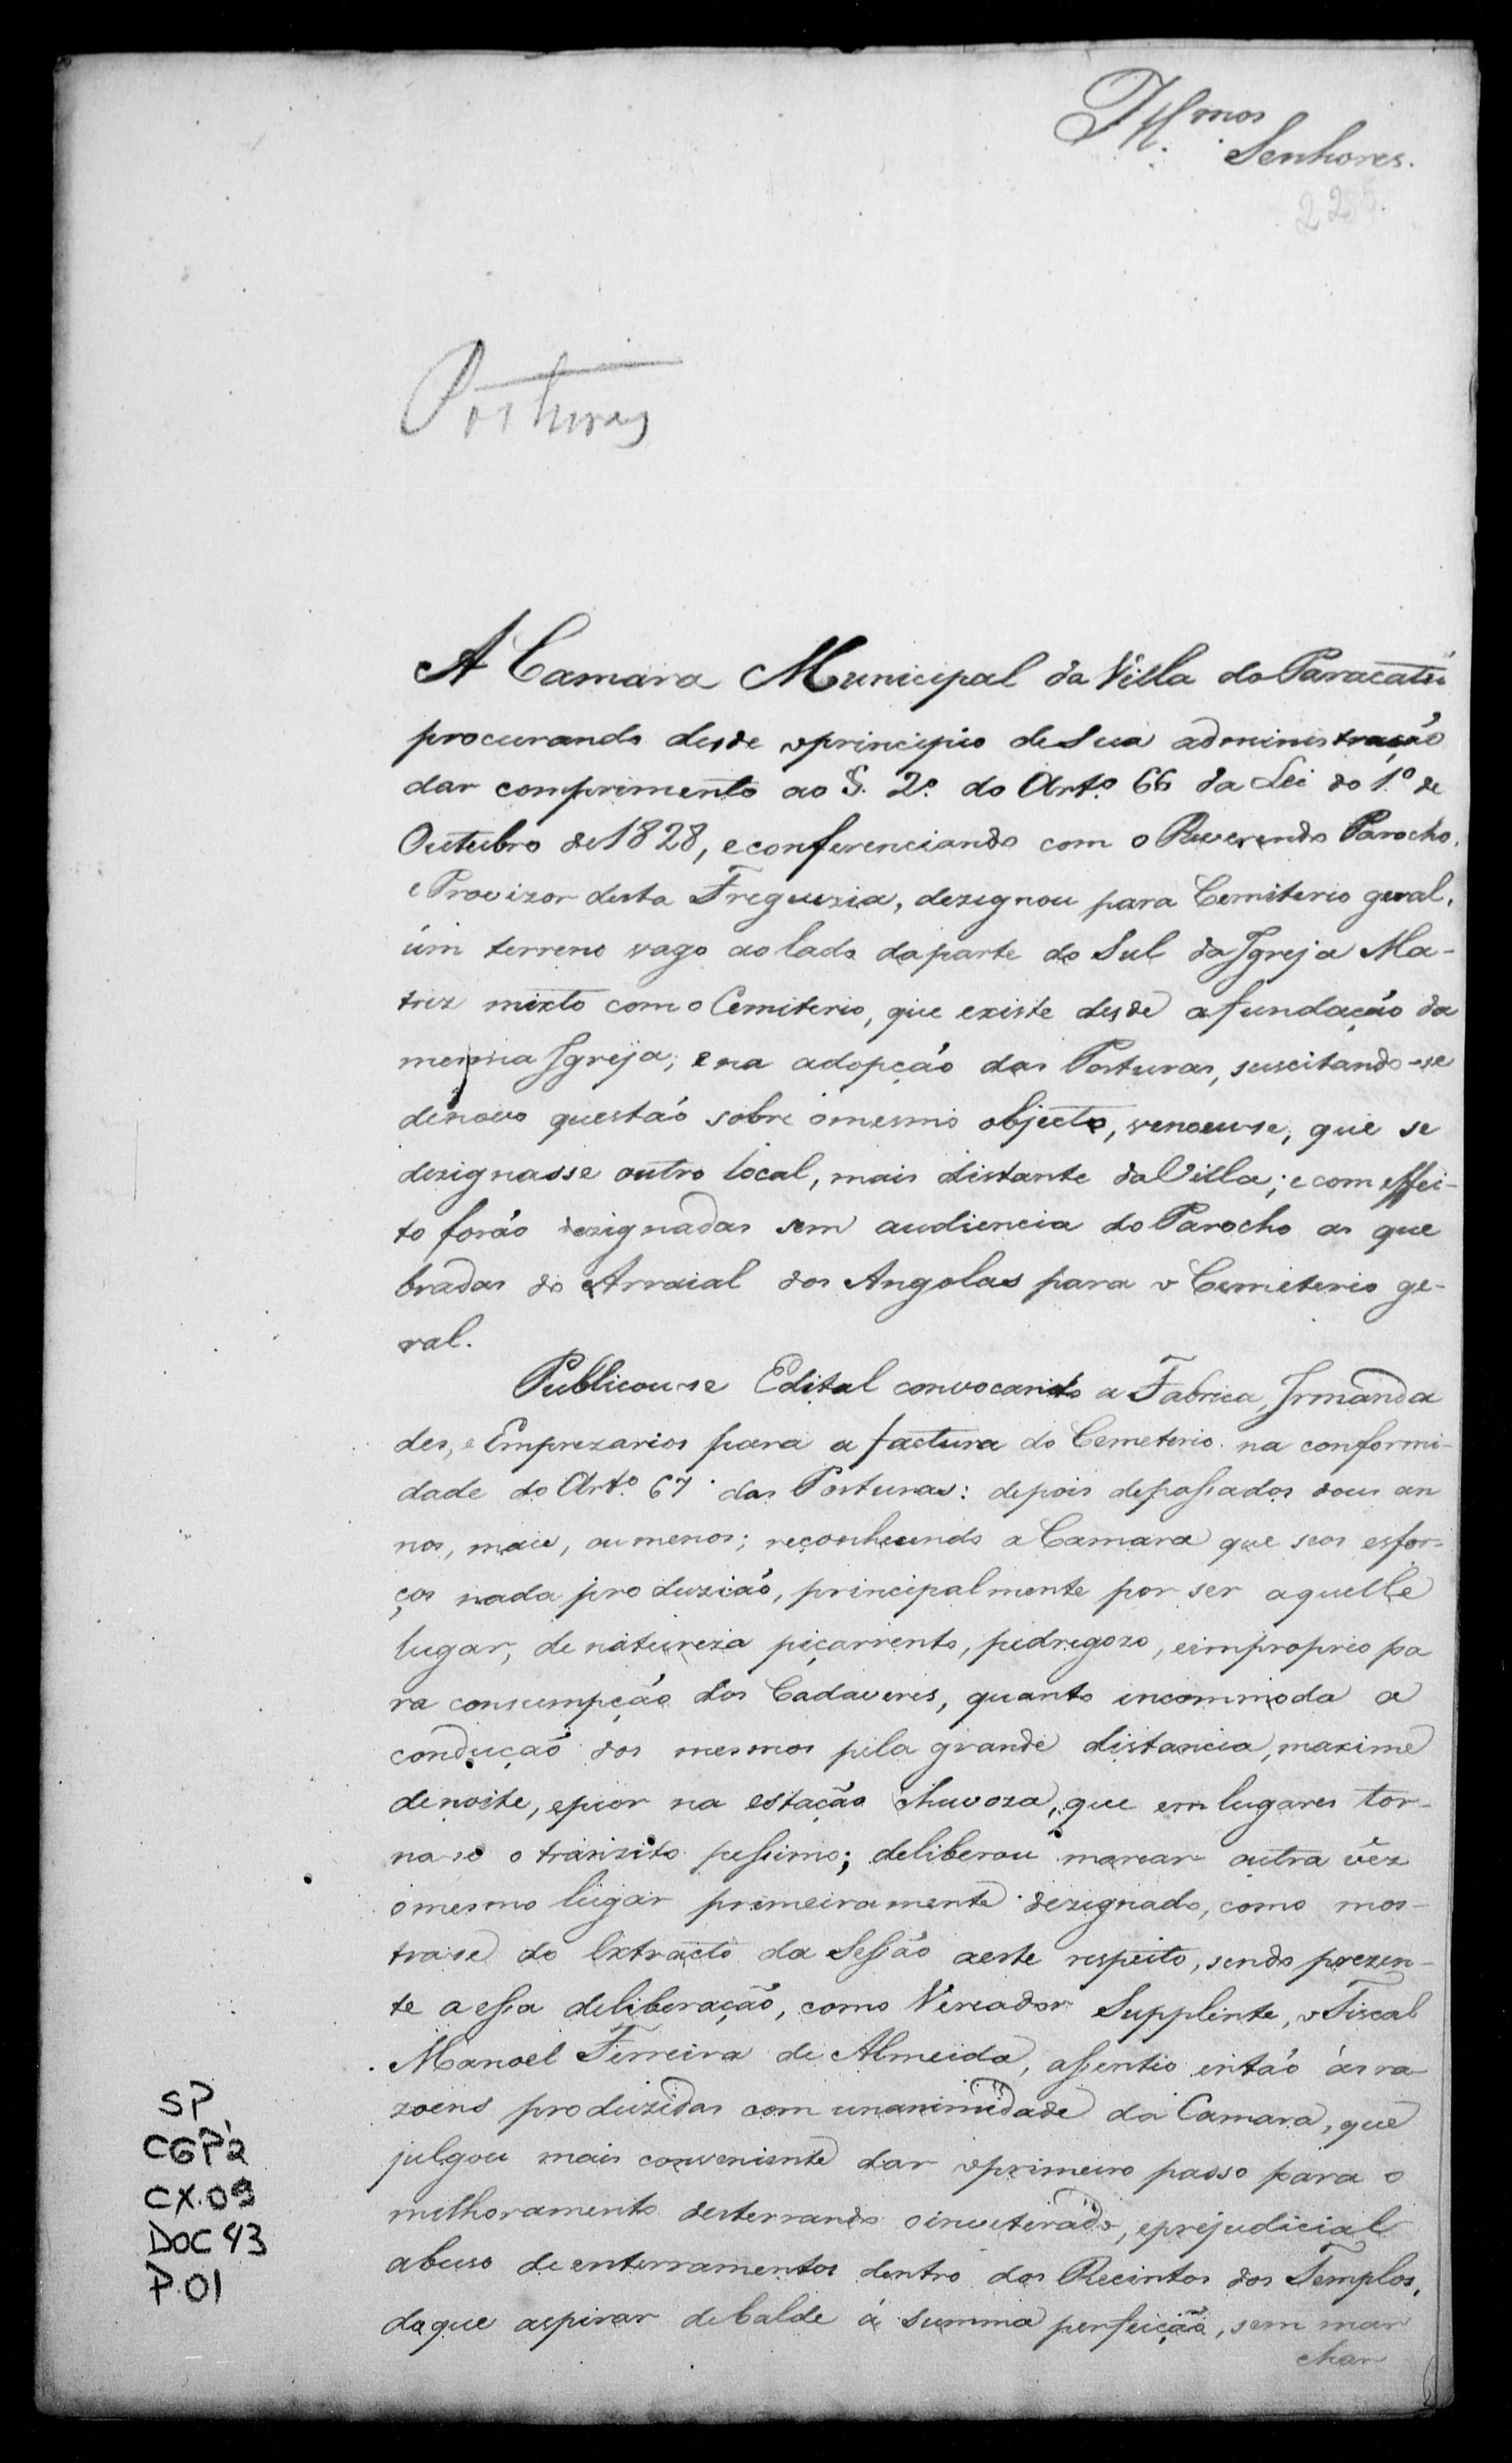 Illmos
Senhores.
225.
Posturas
A Camara Municipal da Villa do Paracatú
procurando desde oprincipio de Sua administração
dar comprimento ao §. 2º. do Artº. 66 da Lei do 1º. de
Outubro de 1828, econferenciando com o Reverendo Parocho,
e Provizor desta Freguezia, dezignou para Cemiterio geral,
úm terreno vago ao lado daparte do Sul da Igreja Ma-
triz mixto com o Cemiterio, que existe desde afundação da
mesma Igreja; e na adopção das Posturas, suscitando-se
denovo questaõ sobre omesmo objecto, venceu-se, que se
dezignasse outro local, mais distante da Villa; e com effei-
to foraõ dezignadas sem audiencia do Parocho as que
bradas do Arraial dos Angolas para o Cemeterio ge-
ral.
Publicou-se Edital convocando a Fabrica, Irmanda
des, e Emprezarios para a factura do Cemeterio na conformi-
dade do Artº. 67 das Posturas: depois depassados dous an
nos, mais, ou menos; reconhecendo a Camara que seos esfor-
ços nada produziaõ, principalmente por ser aquelle
lugar, de natureza piçarrento, pedregozo, eimproprio pa
ra consumpção dos Cadaveres, quanto incommoda a
conduçaõ dos mesmos pela grande distancia, maxime
denoite, epior na estacão chuvoza, que em lugares tor-
na-se o tranzito pessimo; deliberou marcar outra vêz
omesmo lugar primeiramente dezignado, como mos-
tra-se do Extracto da Sessaõ aeste respeito, sendo prezen-
te a essa deliberação, como Vereador Supplente, o Fiscal
Manoel Ferreira de Almeida, assentio entaõ ás ra
zoens produzidas com unanimidade da Camara, que
julgou mais conveniente dar oprimeiro passo para o
milhoramento desterrando oinveterado, eprejudicial
abuso de enterramentos dentro dos Recintos dos Templos,
doque aspirar debalde á summa perfeição, sem mar
char
SP
CGP2
CX.09
DOC 43
P.01